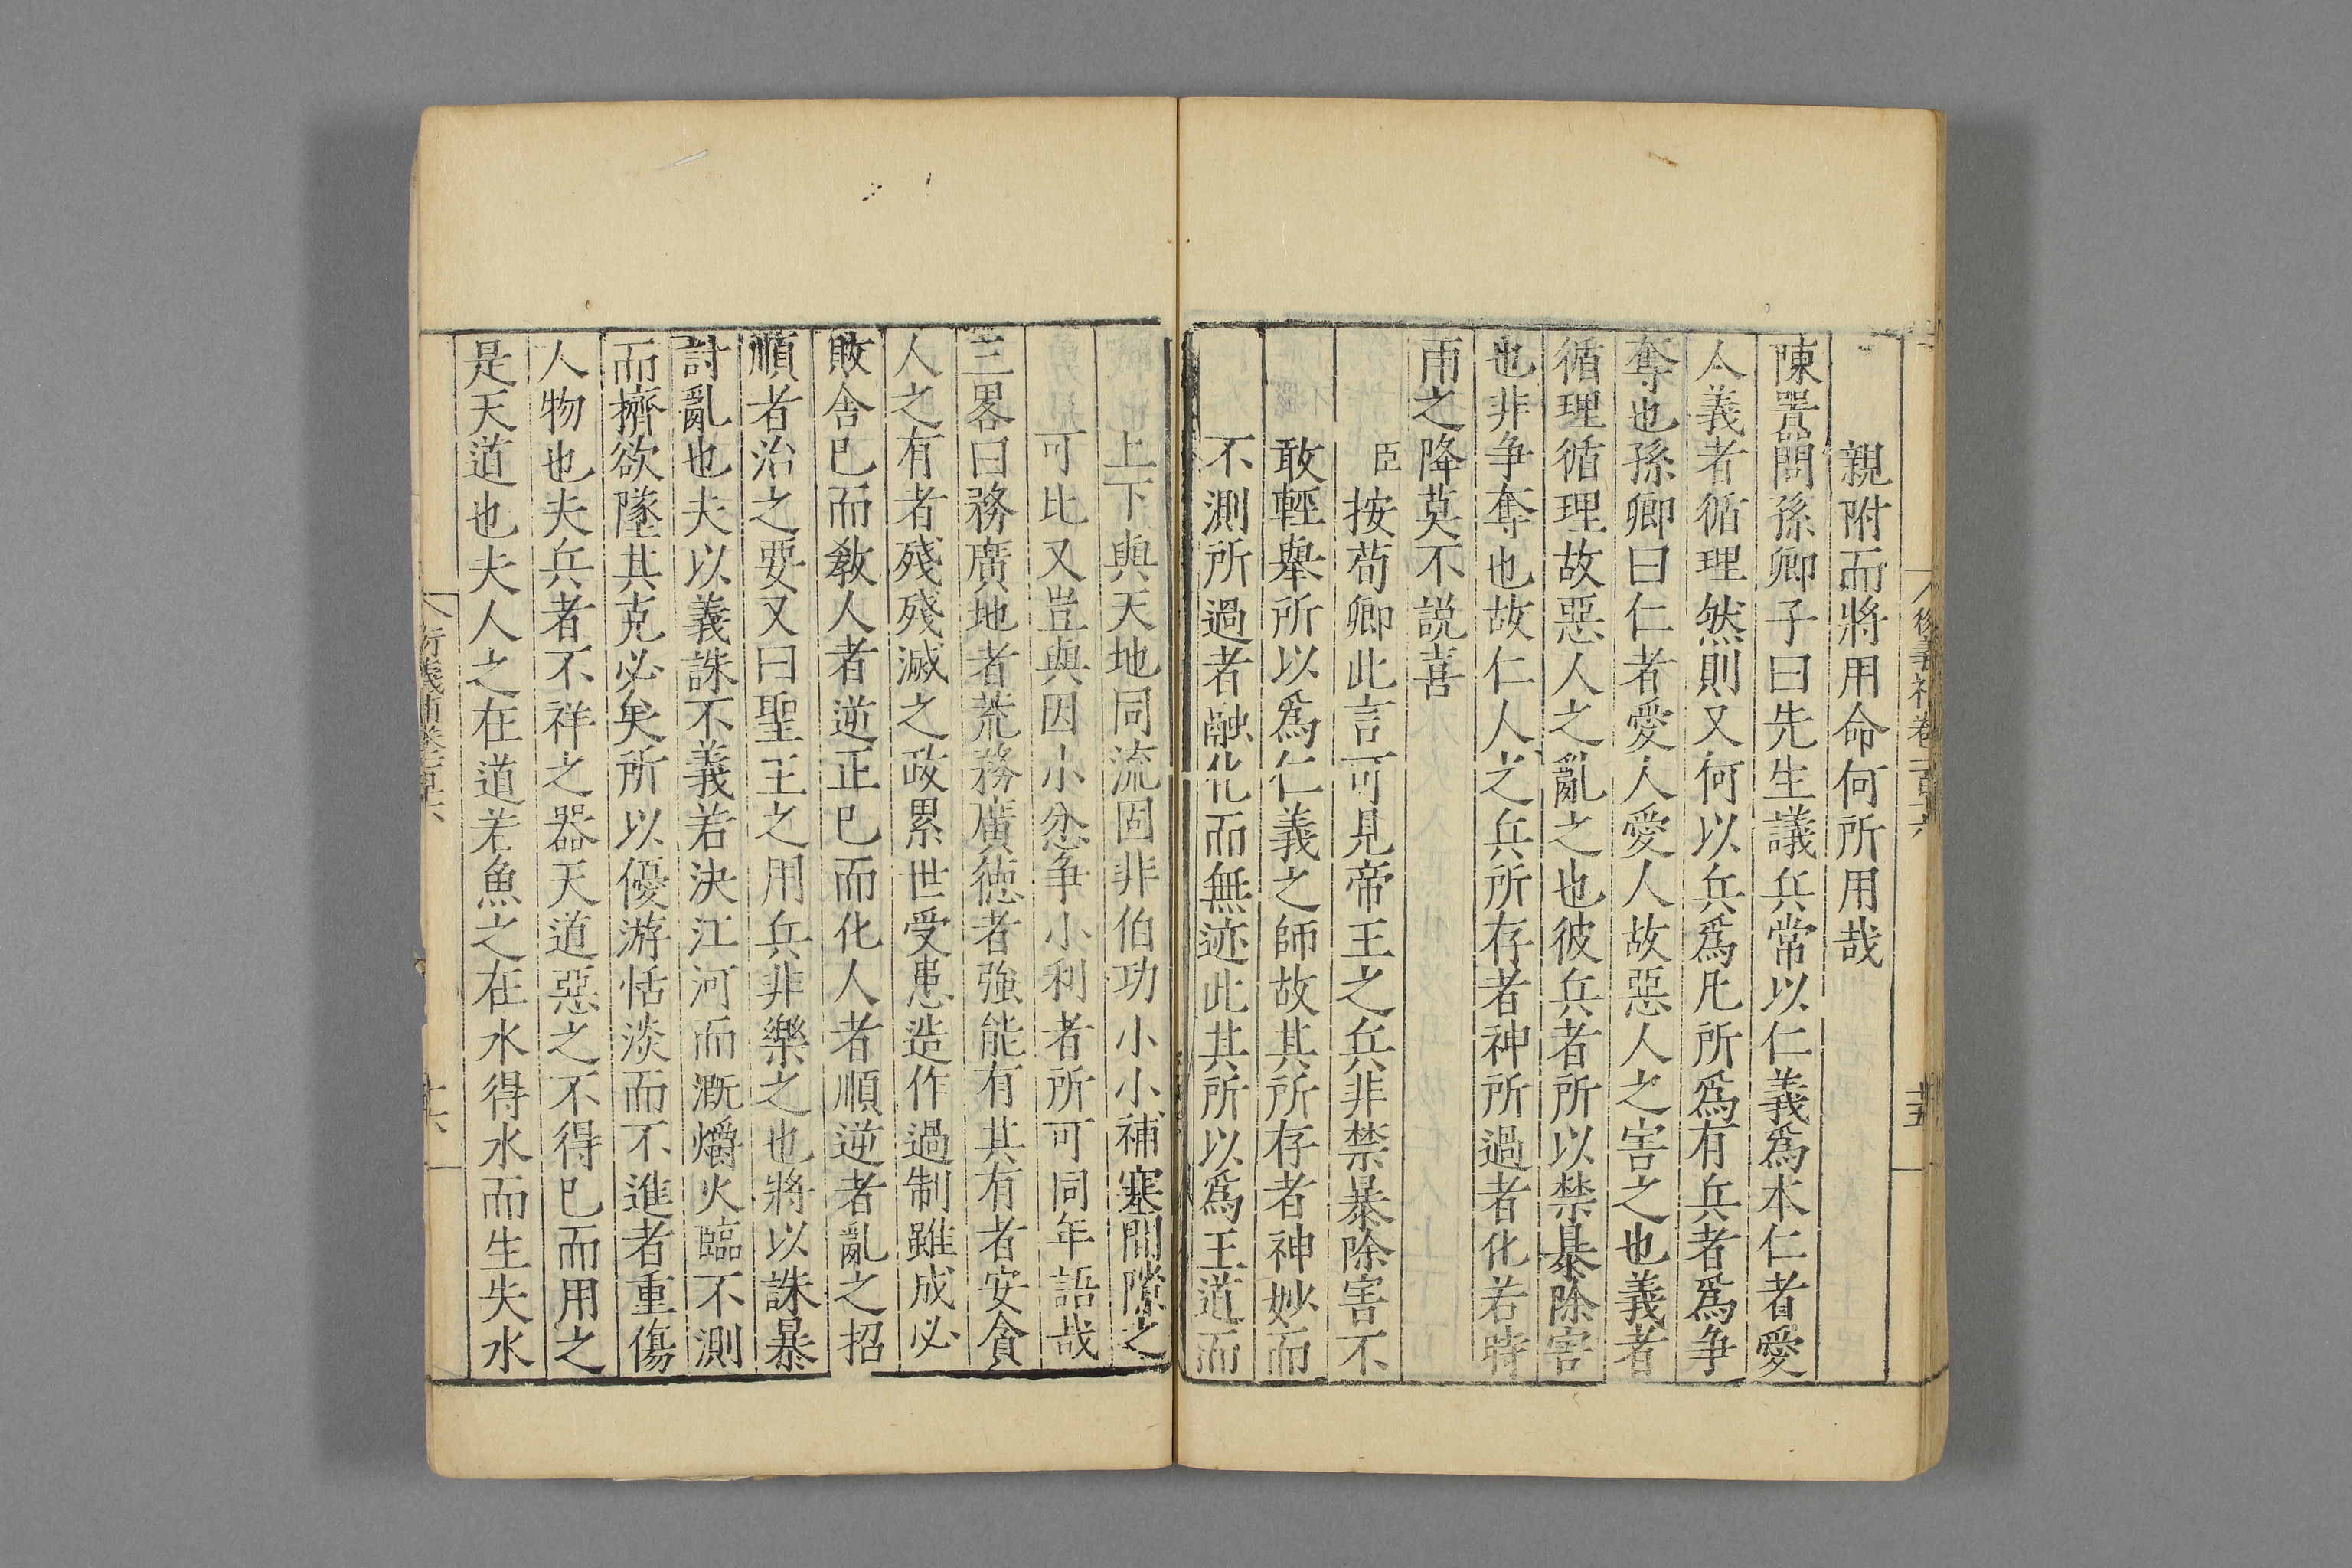 親附而將用命何所用哉
陳嚻問孫卿子曰先生議兵常以仁義爲本仁者愛
人義者循理然則又何以兵爲凡所爲有兵者爲爭
奪也孫卿曰仁者愛人愛人故惡人之害之也義者
循理循理故惡人之亂之也彼兵者所以禁暴除害
也非争奪也故仁人之兵所存者神所過者化若時
雨之降莫不説喜
臣按荀卿此言可見帝王之兵非禁暴除害不
敢輕舉所以爲仁義之師故其所存者神妙而
不測所過者融化而無迹此其所以爲王道而
上下與天地同流固非伯功小小補塞間隙之
可比又豈與因小忿争小利者所可同年語哉
三畧曰務廣地者荒務廣徳者強能有其有者安貪
人之有者殘殘滅之政累世受患造作過制雖成必
敗舎已而教人者逆正已而化人者順逆者亂之招
順者治之要又曰聖王之用兵非樂之也將以誅暴
討亂也夫以義誅不義若決江河而溉爝火臨不測
而擠欲墜其克必矣所以優游恬淡而不進者重傷
人物也夫兵者不祥之器天道惡之不得已而用之
是天道也夫人之在道若魚之在水得水而生失水
衍義補卷一百十六